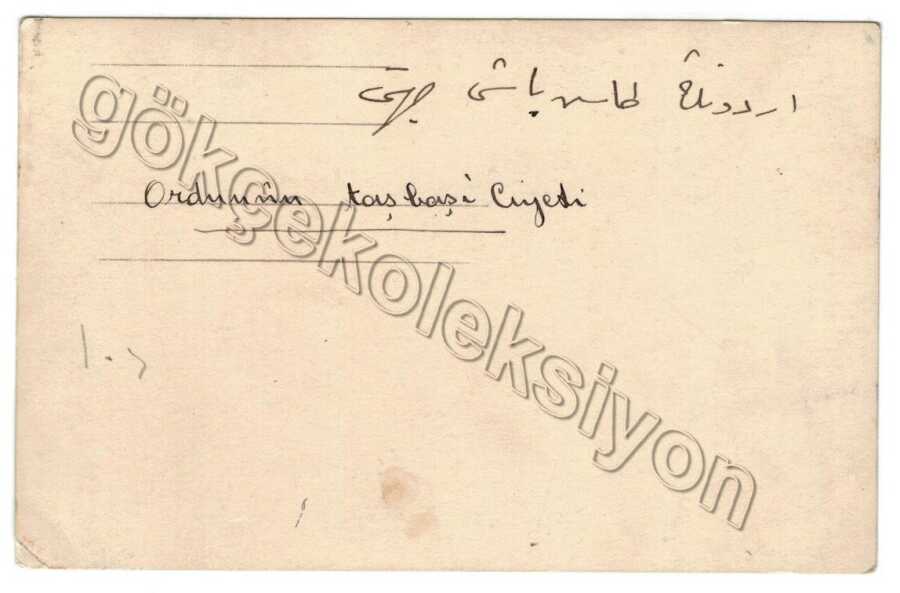 اردونڭ طاش باشی جهتی
Ordunun taşbaşi Ciyeti
gökçekoleksiyon